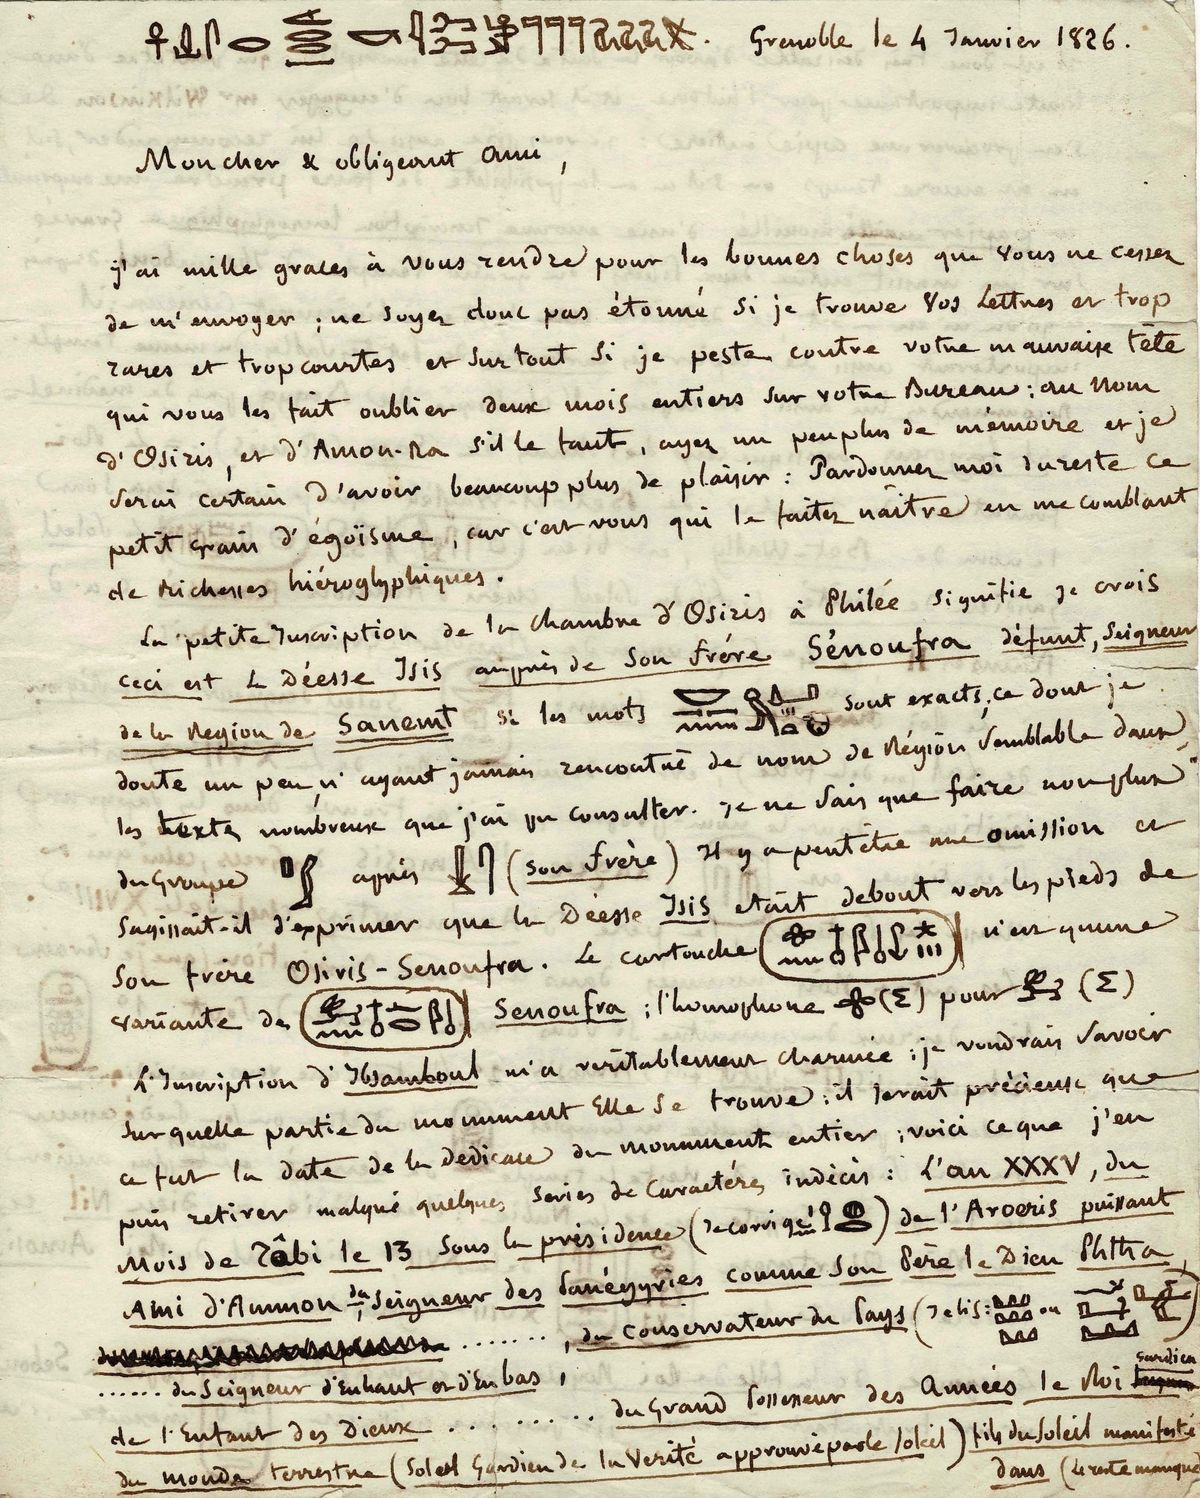 Grenoble le 4 Janvier 1826.
Mon cher & obligeant ami,
j'ai mille graces à vous rendre pour les bonnes choses que vous ne cessez
de m'envoyer ; ne soyez donc pas étonné si je trouve vos Lettres et trop
rares et trop courtes et surtout si je peste contre votre mauvaise tête
qui vous les fait oublier deux mois entiers sur votre Bureau : au Nom
d'Osiris, et d'Amon-Ra s'il le faut, ayez un peu plus de mémoire et je
serai certain d'avoir beaucoup plus de plaisir : Pardonnez moi dureste ce
petit grain d'égoïsme, car c'est vous qui le faites naître en me comblant
de Richesses hiéroglyphiques.
La petite Inscription de la chambre d'Osiris à Philée signifie je crois
ceci est la Déesse Isis auprès de son frére Sénoufra défunt, Seigneur
de la Région de Sanemt si les mots sont exacts, ce dont je
doute un peu, n'ayant jamais rencontré de nom de Région semblable dans
les textes nombreux que j'ai pu consulter. Je ne sais que faire non plus
du Groupe après (son frère) Il y a peut être une omission et
sagissait-il d'exprimer que la Déesse Isis etait debout vers les pieds de
son frére Osiris-Senoufra. Le cartouche n'est qu'une
variante de Senoufra ; l'homophone (Σ) pour (Σ)
L'Inscription d'Ibsamboul m'a véritablement charmée : je voudrais savoir
sur quelle partie du monument Elle se trouve ; il serait précieux que
ce fut la date de la Dédicace du monument entier ; voici ce que j'en
puis retirer malgré quelques séries de Caractéres indécis : L'an XXXV, du
Mois de Tôbi le 13 sous la présidence (Je corrige ) de l'Aroeris puissant
Ami d'Ammon, du Seigneur des Panégyries comme son Père le Dieu Phtha,
......, du Conservateur du Pays (Je lis : ou )
...... du Seigneur d'Enhaut et d'En bas,
de l'Enfant des Dieux ......... du Grand Possesseur des Années le Roi Gardien
du monde terrestre (Soleil Gardien de la Verité approuvé par le soleil) fils du Soleil manifesté
dans (Le reste manque